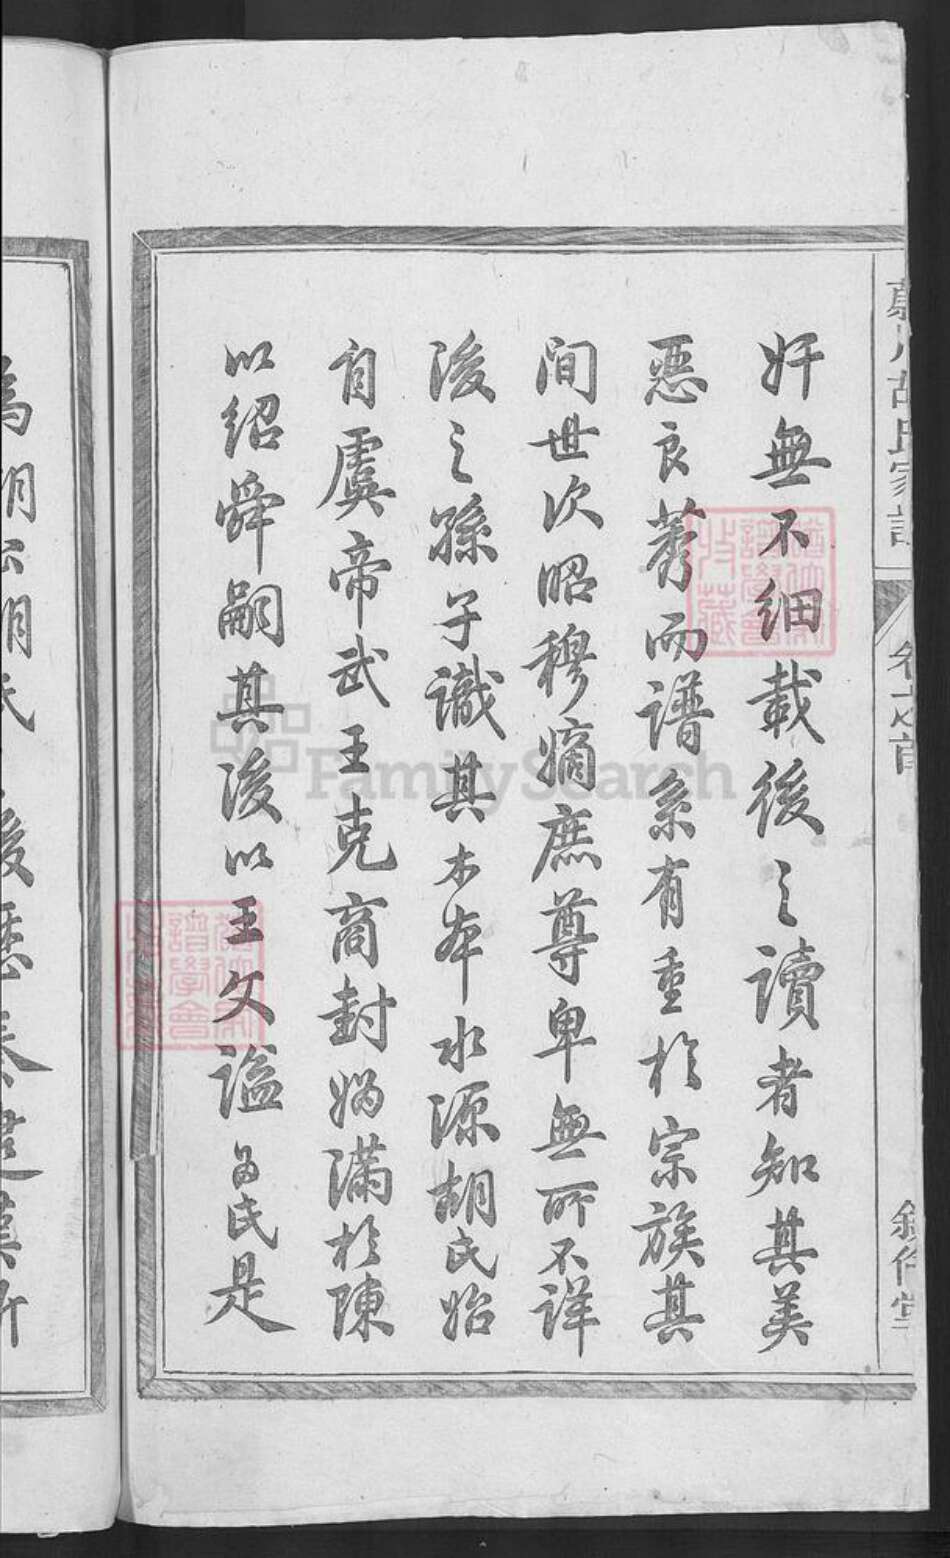 奸無不細載後之讀者知其美
惡良莠而譜系有重於宗族其
間世次昭穆嫡庶尊卑無所不詳
後之孫子識其木本水源胡氏始
自虞帝武王克商封媯滿於陳
以紹舜嗣其後以王父謚為氏是
胡氏家譜
卷之首
FamilySearch